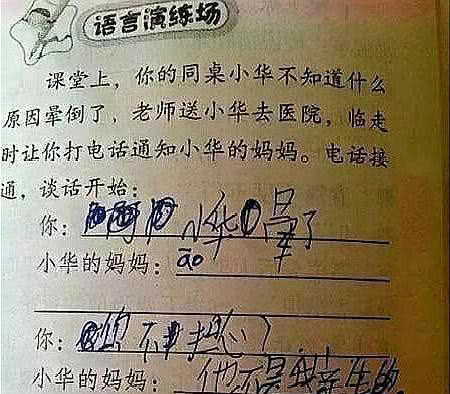 语言演练场
课堂上，你的同桌小华不知道什么
原因晕倒了，老师送小华去医院，临走
时让你打电话通知小华的妈妈。电话接
通，谈话开始：
你：阿门 小华晕了
小华的妈妈：āo
你：你不担心？
小华的妈妈：他不是我亲生的。